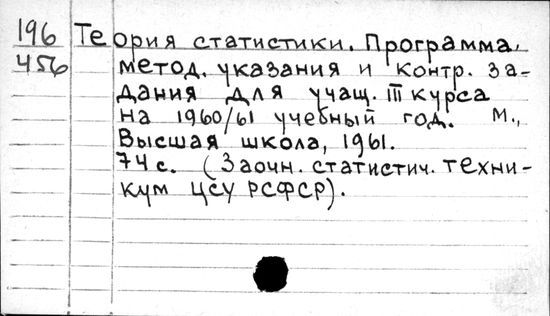 196 Теория статистики. Программа,
456 метод. указания и контр. за-
дания для учащ. III курса
на 1960/61 учебный год. М.,
Высшая школа, 1961.
74 с. (Заочн. статистич. техни-
кум ЦСУ РСФСР).